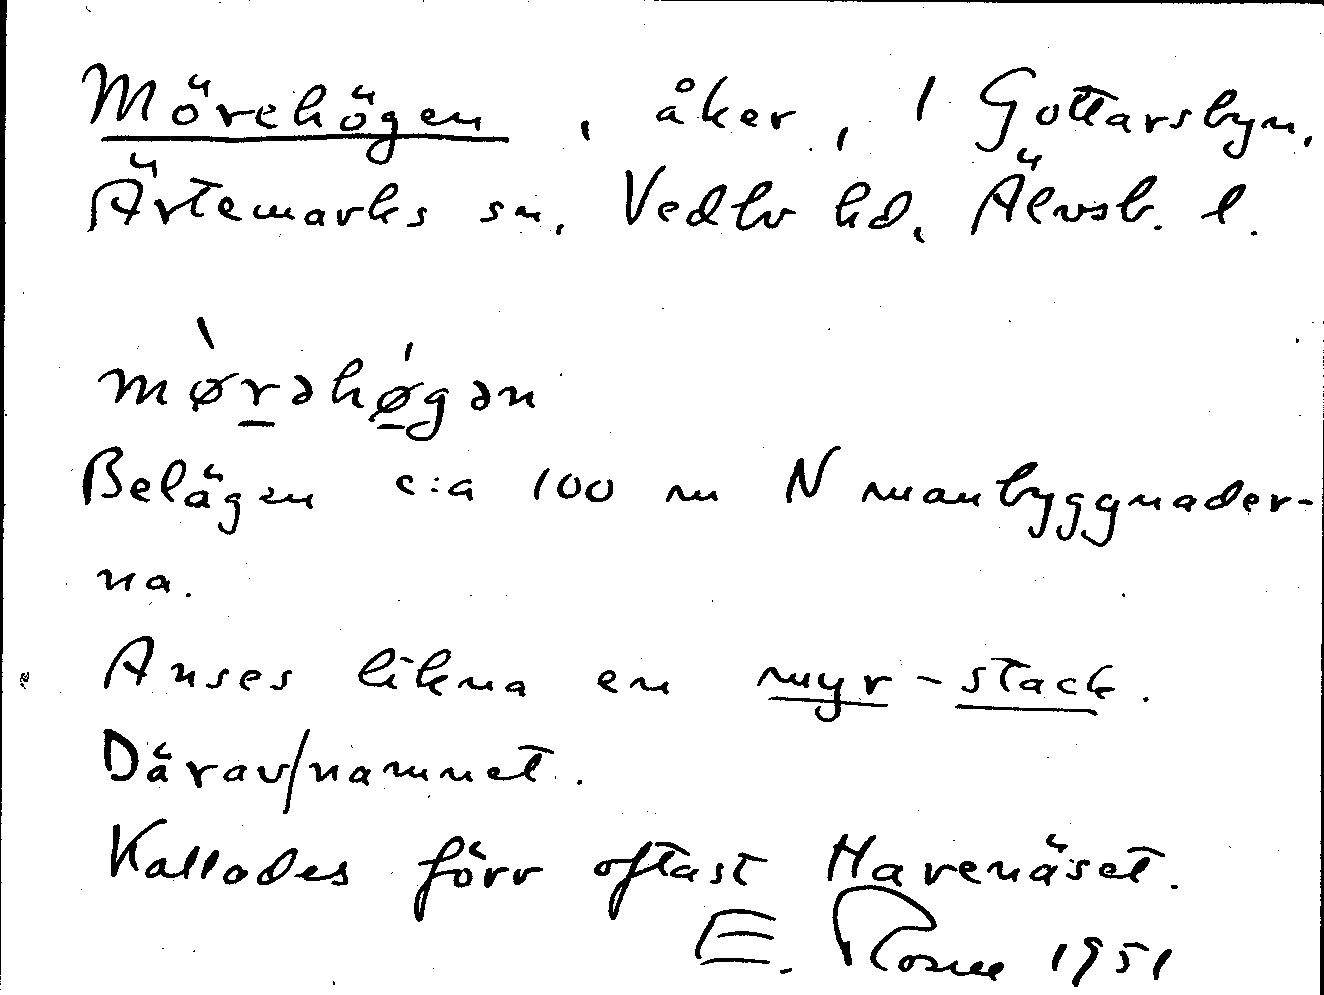 Mörehögen, åker, 1 Gottarsbyn,
Ärtemarks sn, Vedbo hd, Älvsb. l.
mø̀rəhǿgən
Belägen c:a 100 m N manbyggnader-
na.
Anses likna en myr-stack.
Därav/namnet.
Kallades förr oftast Harenäset.
E. Rosne 1951